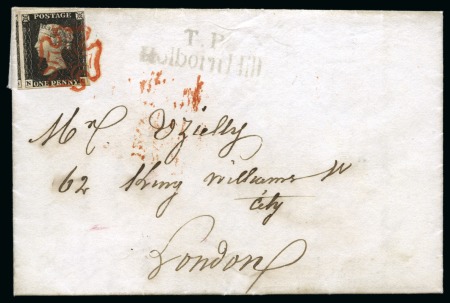 POSTAGE
N
ONE PENNY
T.P
Holborn Hill
Mr Uzielly
62 King Williams St
City
London